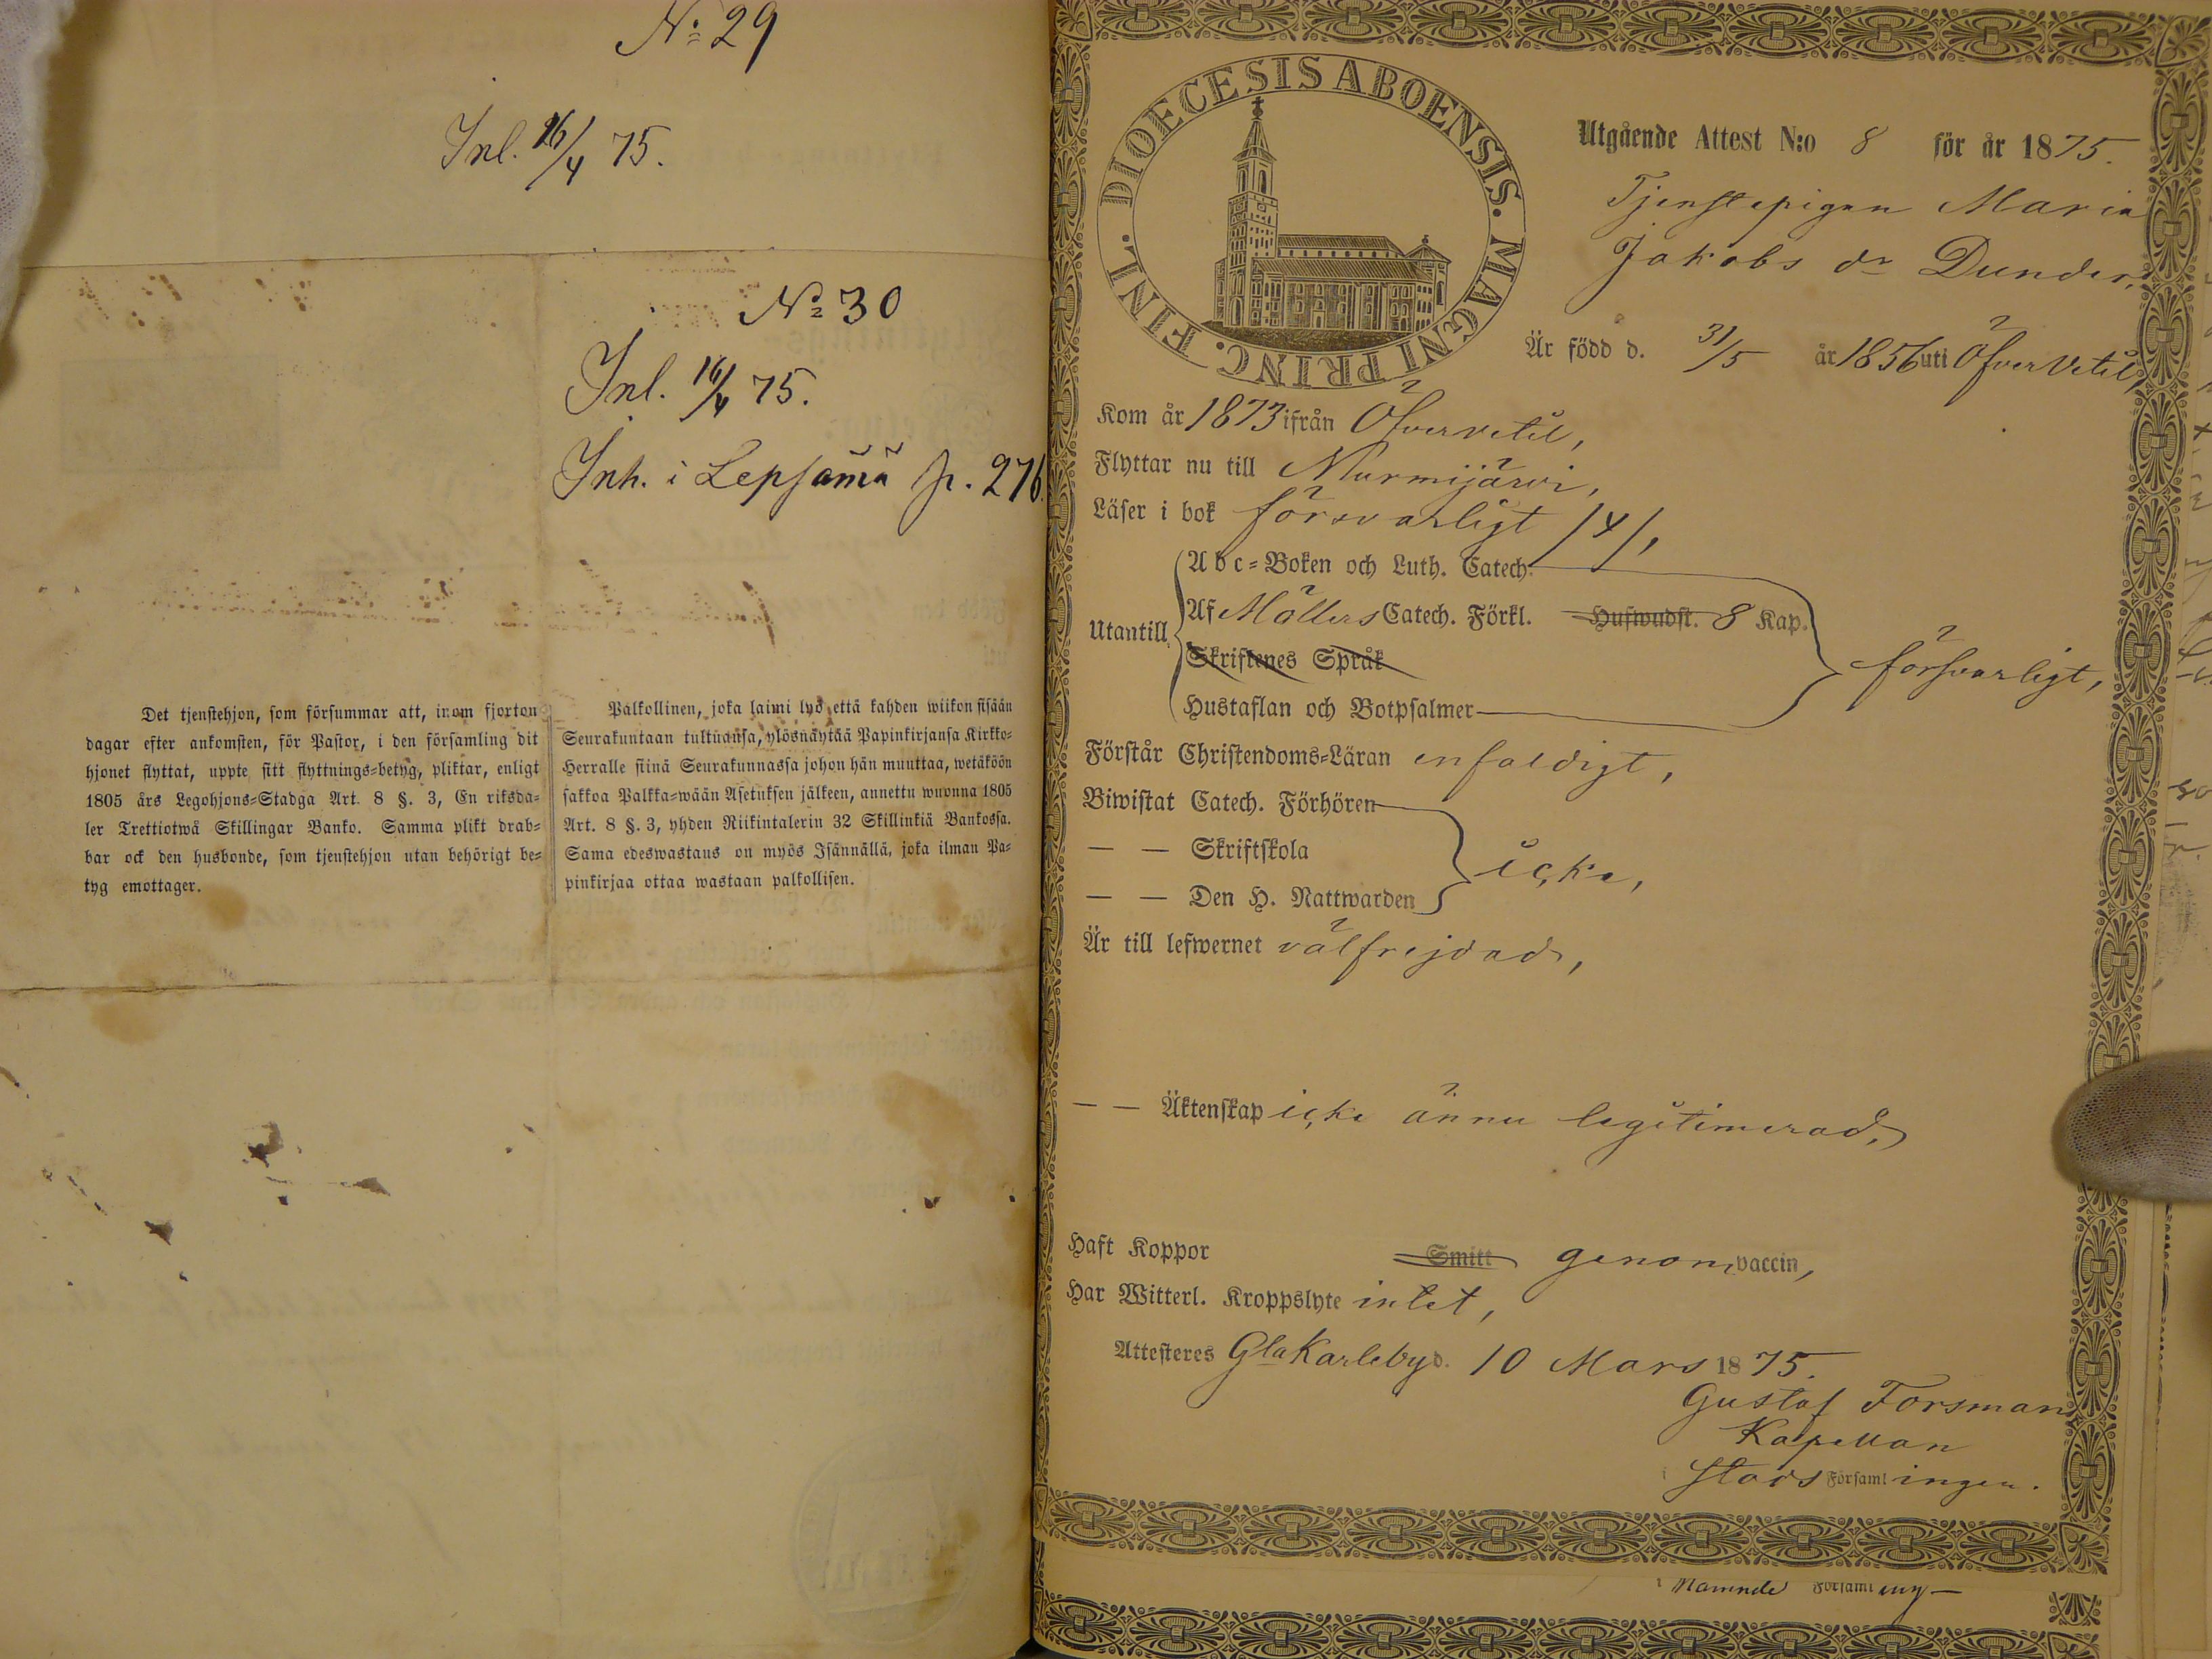 № 29
Inl. 16/4 75.
№ 30
Inl. 16/4 75.
Inh. i Lepsämä p. 276.
Det tjenstehjon, som försummar att, inom fjorton
dagar efter ankomsten, för Pastor, i den församling dit
hjonet flyttat, uppte sitt flyttnings-betyg, pliktar, enligt
1805 års Legohjons-Stadga Art. 8 §. 3, En riksda-
ler Trettiotwå Skillingar Banko. Samma plikt drab-
bar ock den husbonde, som tjenstehjon utan behörigt be-
tyg emottager.
Palkollinen, joka laimi lyö, että kahden wiikon sisään
Seurakuntaan tultuansa, ylösnäyttää Papinkirjansa Kirkko-
Herralle siinä Seurakunnassa johon hän muuttaa, wetäköön
sakkoa Palkka-wään Asetuksen jälkeen, annettu wuonna 1805
Art. 8 §. 3, yhden Riikintalerin 32 Skillinkiä Bankossa.
Sama edeswastaus on myös Isännällä, joka ilman Pa-
pinkirjaa ottaa wastaan palkollisen.
DIOECESIS ABOENSIS. MAGNI PRINC. FINL.
Utgående Attest N:o 8 för år 1875.
Tjenstepigan Maria
Jakobs dr Dunder,
Är född d. 31/5 år 1856 uti Öfvervetil,
Kom år 1873 ifrån Öfvervetil,
Flyttar nu till Nurmijärvi,
Läser i bok försvarligt /4/,
Utantill
Abc-Boken och Luth. Catech.
Af Möllers Catech. Förkl. Hufwudst. 8 Kap.
Skriftenes Språk
Hustaflan och Botpsalmer
försvarligt,
Förstår Christendoms-Läran enfaldigt,
Biwistat Catech. Förhören
— — Skriftskola
— — Den H. Nattwarden
icke,
Är till lefwernet välfrejdad,
— — Äktenskap icke ännu legitimerad,
Haft Koppor Smitt genom vaccin,
Har Witterl. Kroppslyte intet,
Attesteres Gla Karleby d. 10 Mars 1875.
Gustaf Forsman,
Kapellan
i Stads Församlingen.
i Nämnde Församling —